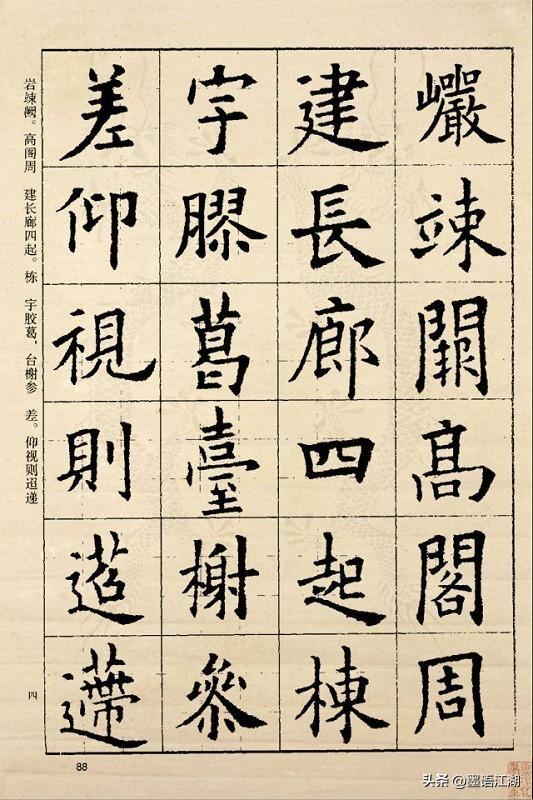 巗竦闕髙閣周
建長廊四起棟
宇膠葛臺榭參
差仰視則迢遰
岩竦阙。高阁周　建长廊四起。栋　宇胶葛，台榭参　差。仰视则迢递
四
88
头条 @墨语江湖